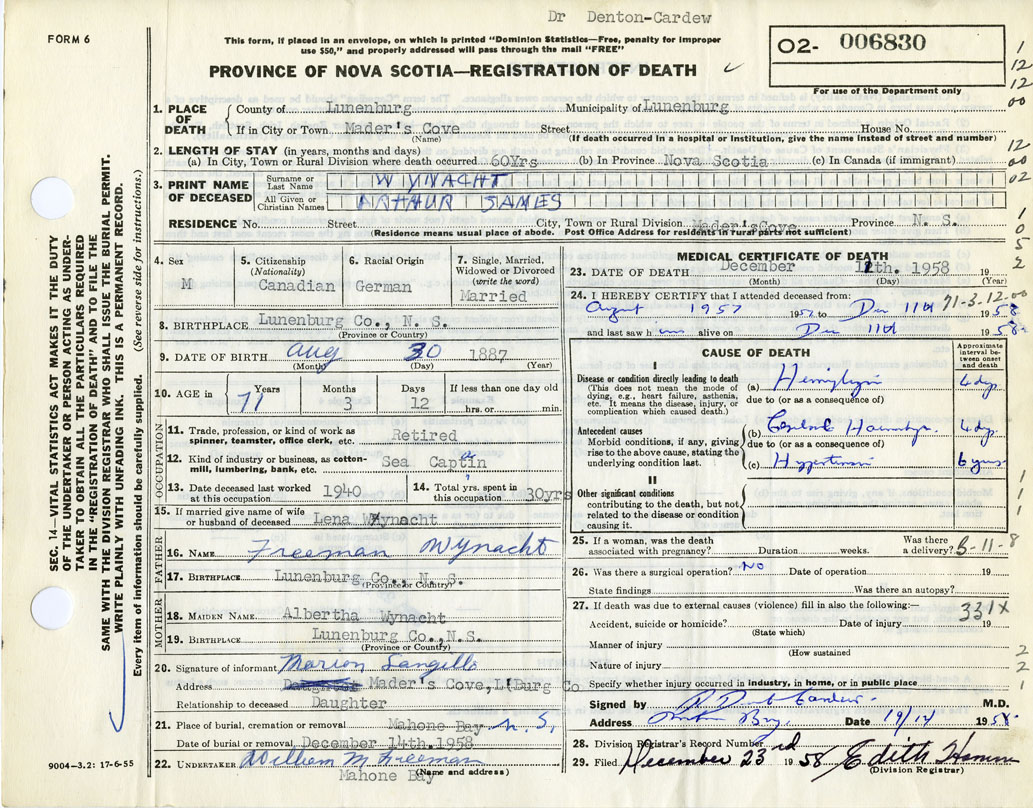 Dr Denton-Cardew
FORM 6
This form, if placed in an envelope, on which is printed "Dominion Statistics—Free, penalty for improper
use $50," and properly addressed will pass through the mail "FREE"
O2- 006830
PROVINCE OF NOVA SCOTIA—REGISTRATION OF DEATH
For use of the Department only
1
12
12
00
12
00
02
1
0
5
2
SEC. 14—VITAL STATISTICS ACT MAKES IT THE DUTY
OF THE UNDERTAKER OR PERSON ACTING AS UNDER-
TAKER TO OBTAIN ALL THE PARTICULARS REQUIRED
IN THE "REGISTRATION OF DEATH" AND TO FILE THE
SAME WITH THE DIVISION REGISTRAR WHO SHALL ISSUE THE BURIAL PERMIT.
WRITE PLAINLY WITH UNFADING INK. THIS IS A PERMANENT RECORD.
Every item of information should be carefully supplied. (See reverse side for instructions.)
1. PLACE OF DEATH
County of Lunenburg Municipality of Lunenburg
If in City or Town Mader's Cove Street House No.
(Name) (If death occurred in a hospital or institution, give the name instead of street and number)
2. LENGTH OF STAY (in years, months and days)
(a) In City, Town or Rural Division where death occurred 60Yrs (b) In Province Nova Scotia (c) In Canada (if immigrant)
3. PRINT NAME OF DECEASED
Surname or Last Name WYNACHT
All Given or Christian Names ARTHUR JAMES
RESIDENCE No. Street City, Town or Rural Division Mader'sCove Province N. S.
(Residence means usual place of abode. Post Office Address for residents in rural parts not sufficient)
4. Sex
M
5. Citizenship
(Nationality)
Canadian
6. Racial Origin
German
7. Single, Married,
Widowed or Divorced
(write the word)
Married
8. BIRTHPLACE Lunenburg Co., N. S.
(Province or Country)
9. DATE OF BIRTH Aug 30 1887
(Month) (Day) (Year)
10. AGE in
Years Months Days If less than one day old
71 3 12 hrs. or min.
OCCUPATION
11. Trade, profession, or kind of work as
spinner, teamster, office clerk, etc. Retired
12. Kind of industry or business, as cotton-
mill, lumbering, bank, etc. Sea Captin
13. Date deceased last worked
at this occupation 1940
14. Total yrs. spent in
this occupation 30yrs
15. If married give name of wife
or husband of deceased Lena Wynacht
FATHER
16. NAME Freeman Wynacht
17. BIRTHPLACE Lunenburg Co., N. S.
(Province or Country)
MOTHER
18. MAIDEN NAME Albertha Wynacht
19. BIRTHPLACE Lunenburg Co.,N.S.
(Province or Country)
20. Signature of informant Marion Langille
Address Mader's Cove, L'Burg Co
Relationship to deceased Daughter
21. Place of burial, cremation or removal Mahone Bay N.S.
Date of burial or removal December 14th.1958
22. UNDERTAKER William M Freeman
Mahone Bay (Name and address)
9004—3.2: 17-6-55
MEDICAL CERTIFICATE OF DEATH
23. DATE OF DEATH December 12th. 1958 19
(Month) (Day) (Year)
24. I HEREBY CERTIFY that I attended deceased from: 71-3-12-00
August 1957 1957 to Dec 11th 1958
and last saw him alive on Dec 11th 1958
CAUSE OF DEATH
Approximate
interval be-
tween onset
and death
I
Disease or condition directly leading to death
(This does not mean the mode of
dying, e.g., heart failure, asthenia,
etc. It means the disease, injury, or
complication which caused death.)
(a) Hemiplegia 4 dys
due to (or as a consequence of)
Antecedent causes
Morbid conditions, if any, giving
rise to the above cause, stating the
underlying condition last.
(b) Cerebral Haemorrhage 4 dys
due to (or as a consequence of)
(c) Hypertension 6 yrs
II
Other significant conditions
contributing to the death, but not
related to the disease or condition
causing it.
1
1
1
25. If a woman, was the death
associated with pregnancy? Duration weeks. Was there
a delivery? 3-11-8
26. Was there a surgical operation? NO Date of operation 19
State findings Was there an autopsy?
27. If death was due to external causes (violence) fill in also the following:—
331X
Accident, suicide or homicide? Date of injury 19
(State which)
Manner of injury
(How sustained
Nature of injury
Specify whether injury occurred in industry, in home, or in public place
2
2
1
Signed by M.D.
Address Date 19/12 1958
28. Division Registrar's Record Number
29. Filed December 23rd 1958 Edith
(Division Registrar)